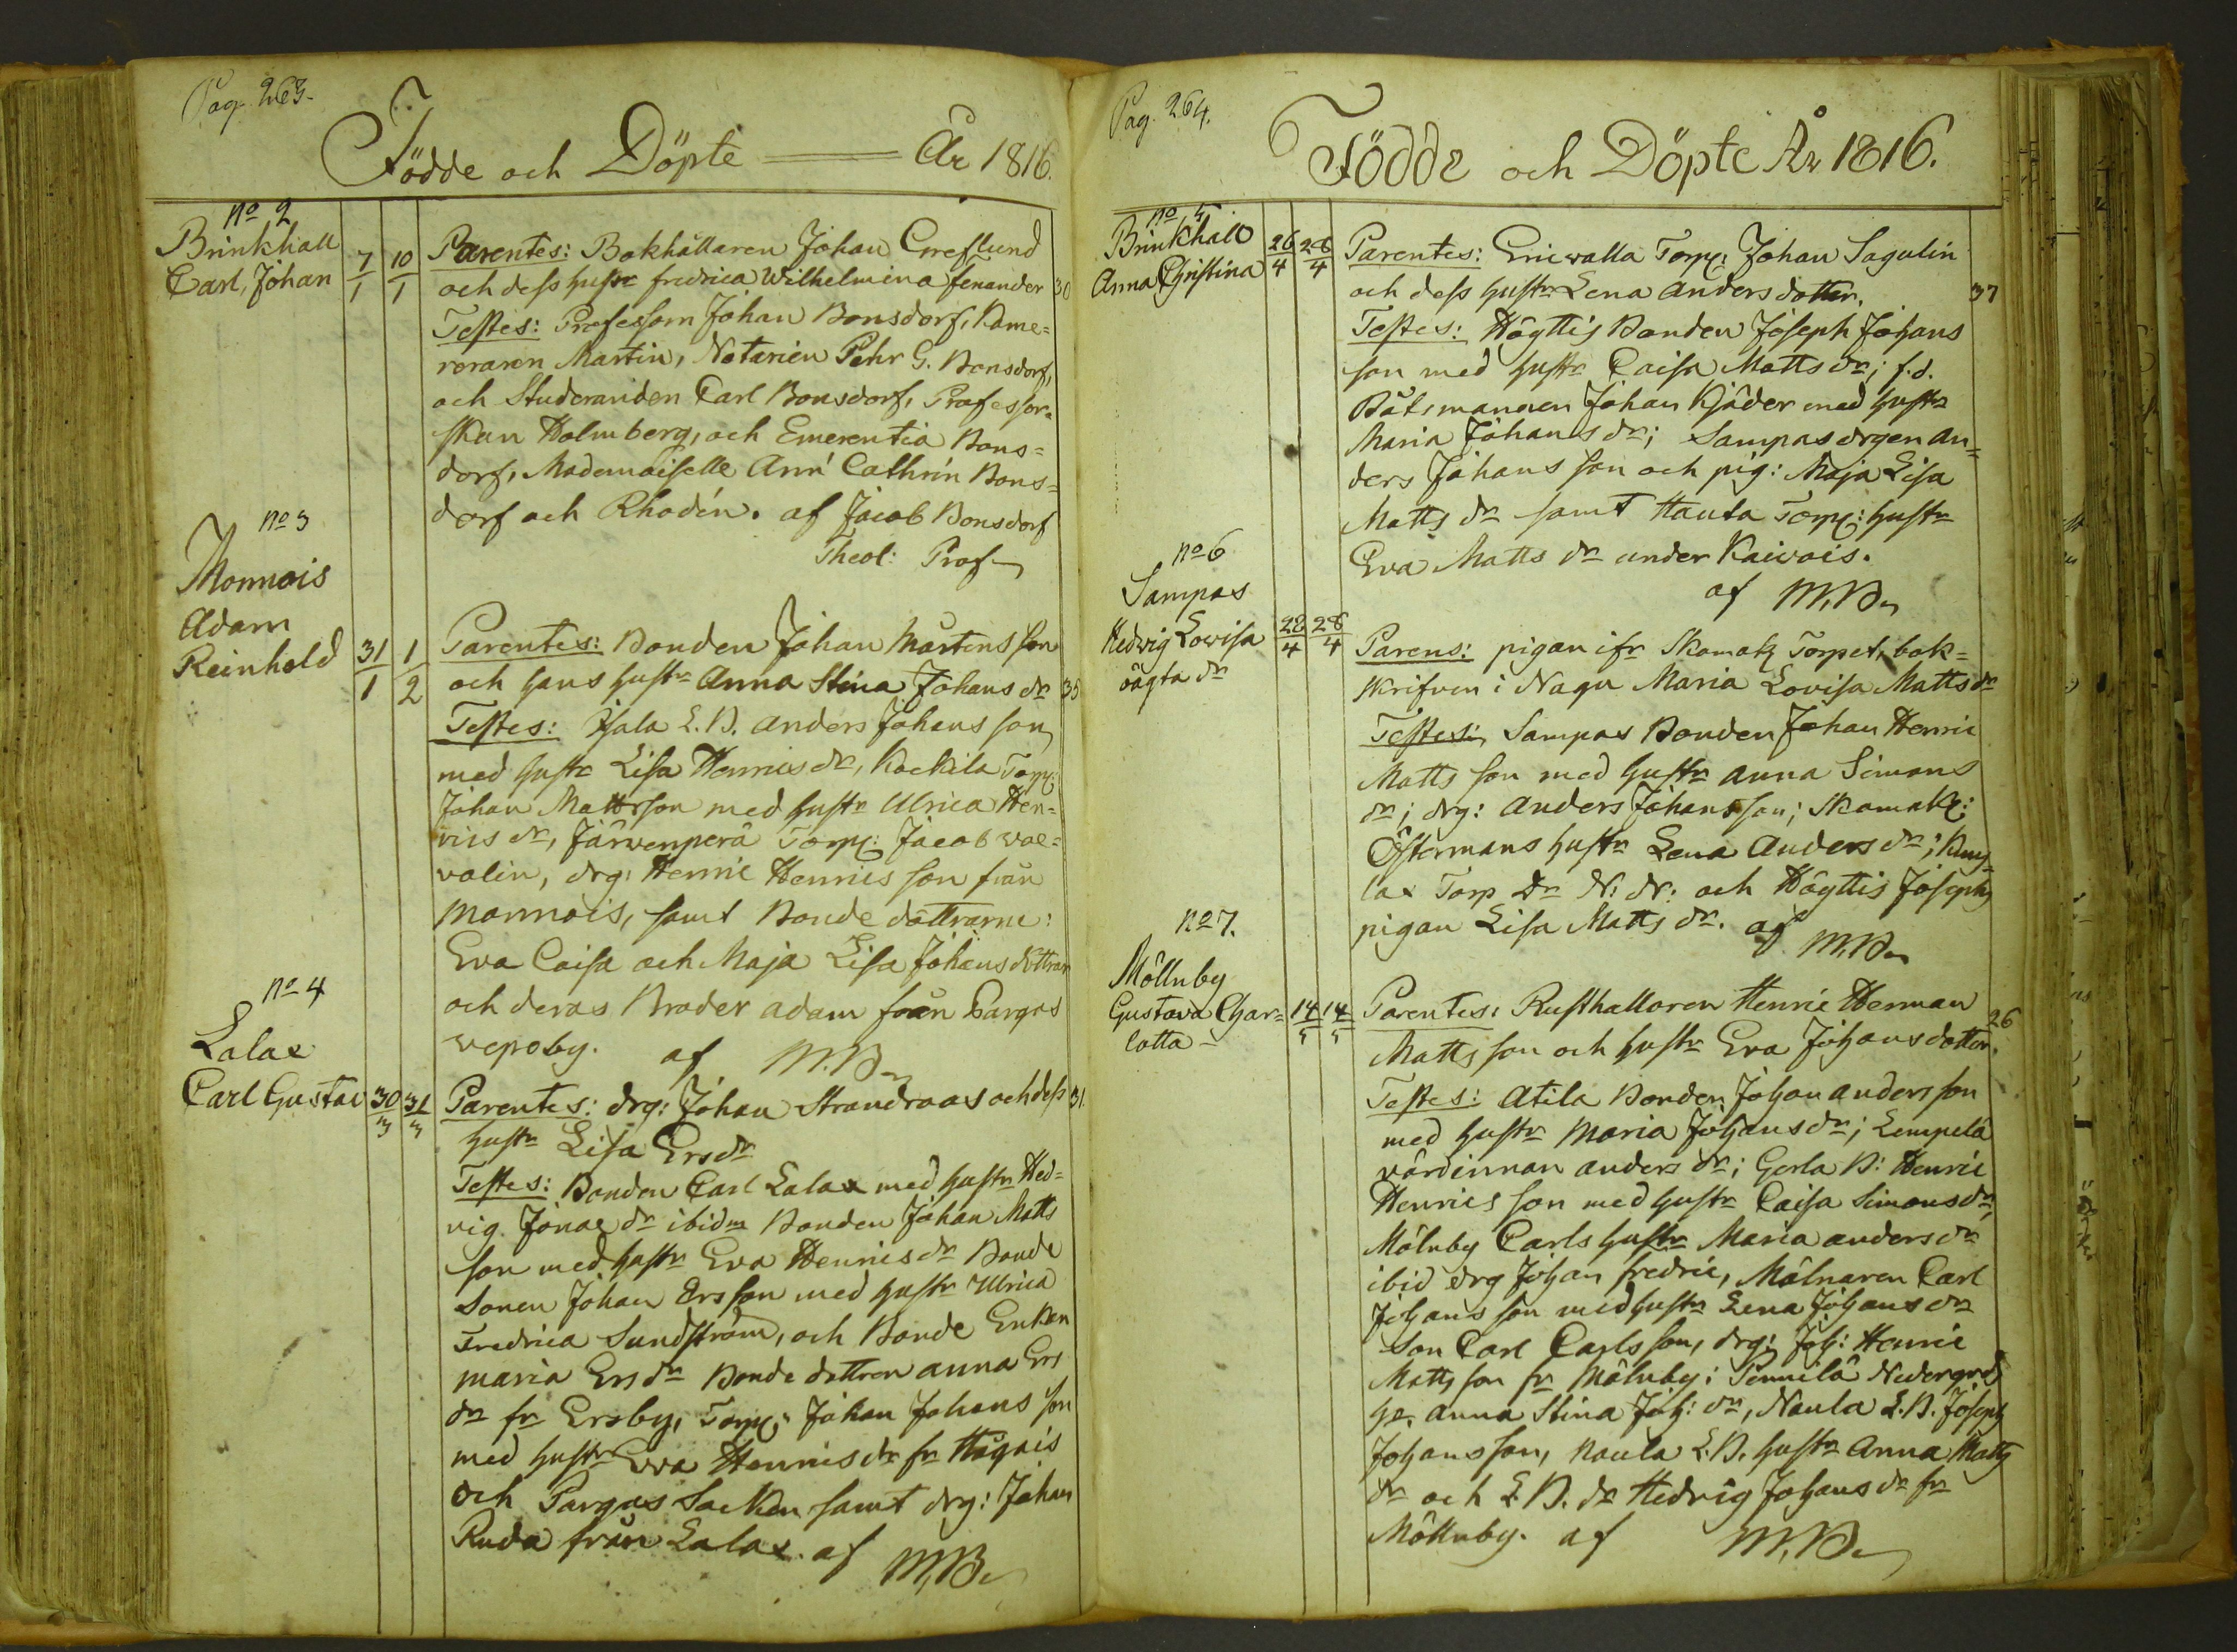 Pag. 263.
Födde och Döpte År 1816.
No 2
Brinkhall
Carl Johan
7/1 10/1
Parentes: Bokhållaren Johan Greflund
och dess hustr fredrica Wilhelmina fenander 30
Testes: Professorn Johan Bonsdorf, Kame=
reraren Martin, Notarien Pehr G. Bonsdorf,
och Studeranden Carl Bonsdorf, Professor=
skan Holmberg, och Emerentia Bons=
dorf, Mademoiselle Ann Cathrin Bons=
dorf och Rhodén. af Jacob Bonsdorf
Theol: Prof
No 3
Monnois
Adam
Reinhold
31/1 1/2
Parentes: Bonden Johan Mårtens son
och hans hustr Anna Stina Johans dr 35
Testes: L.B. Anders Johans son
med hustr Lisa Henrics dr, Kockila Torp:
Johan Matts son med hustr Ulrica Hen=
rics dr, Järwenperä Torp: Jacob wal=
valin, drg: Henric Henrics son från
Monnois, samt Bonde döttrarne:
Eva Caisa och Maja Lisa Johans döttrar
och deras Broder adam från Pargas
vepoby. af M.B.
No 4
Lalax
Carl Gustav
30/3 31/3
Parentes: drg: Johan Strandroos och dess 31
hustr Lisa Ersdr
Testes: Bonden Carl Lalax med hustr Hed=
vig Jonae dr ibidm Bonden Johan Matts
son med hustr Eva Henrics dr Bonde
Sonen Johan Ersson med hustr Ulrica
Fredrica Sundström, och Bonde Enkan
maria Ersdr Bonde dottren anna Ers
dr fr Ersby, Torp: Johan Johans son
med hustr Eva Henrics dr fr Högais
och Pargas Socken samt drg: Johan
Ruda från Lalax. af M.B.
Pag. 264.
Födde och Döpte År 1816.
No 5
Brinkhall
Anna Christina
26/4 28/4
Parentes: Erievalla Torp: Johan Sagulin
och dess hustr Lena Anders dotter. 37
Testes: Högttis Bonden Joseph Johans
son med hustr Caisa Matts dr; f.d.
Båtsmannen Johan Kjäder med hustr
Maria Johans dr; Sampas drgen An=
ders Johans son och pig: Maja Lisa
Matts dr samt Hauta Torp: hustr
Eva Matts dr under Kaivois.
af M.B.
No 6
Sampas
Hedvig Lovisa
oägta dr
28/4 28/4
Parens: pigan ifr Skomak Torpet, bok=
skrifven i Nagu Maria Lovisa Matts dr
Testes: Sampas Bonden Johan Henric
Matts son med hustr Anna Simons
dr; drg: Anders Johans son; Skomak:
Östermans hustr Lena Anders dr;
lax Torp Dr N: N: och Högttis Josephs
pigan Lisa Matts dr. af M.B.
No 7.
Mölnby
Gustava Char=
lotta
14/5 14/5
Parentes: Rusthållaren Henric Herman 26
Matts son och hustr Eva Johans dotter.
Testes: Atila Bonden Johan Anders son
med hustr Maria Johans dr; Lempelä
värdinnan Anders dr; Gerla B: Henric
Henrics son med hustr Caisa Simons dr,
Mölnby Carls hustr Maria anders dr
ibid drg Johan fredric, Mölnaren Carl
Johans son med hustr Lena Johans dr
Son Carl Carls son, drg: Joh: Henric
Matts son fr Mölnby; Pennilä Nedergrd
anna Stina Joh: dr, Naula L.B. Joseph
Johans son, Naula L.B. hustr Anna Matts
dr och L.B. dr Hedvig Johans dr fr
Mölnby. af M.B.